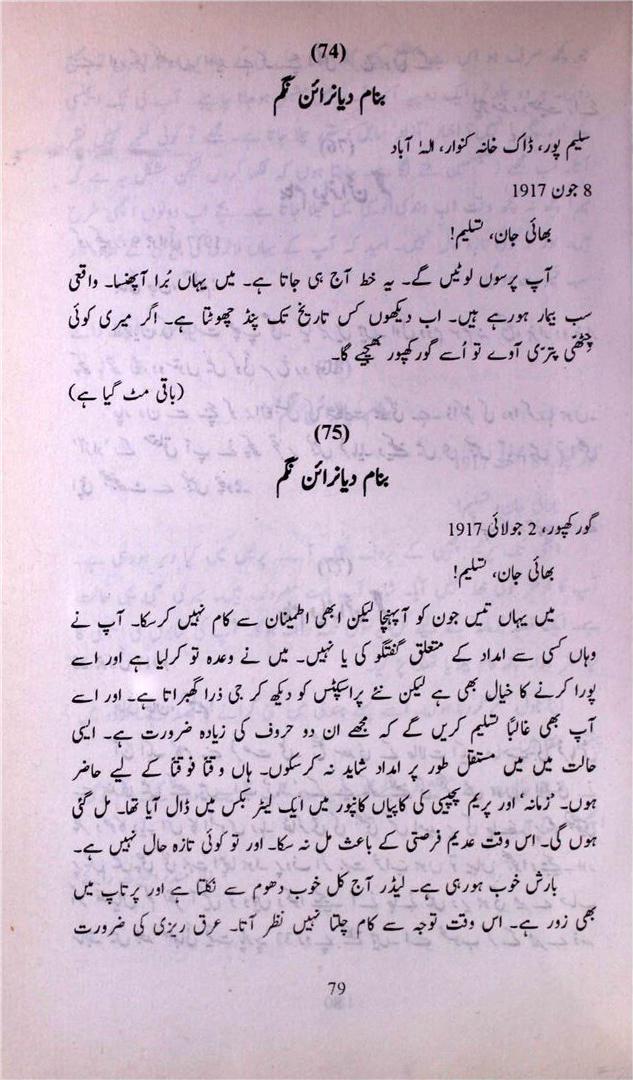 (74)
بنام دیانرائن نگم
سلیم پور، ڈاک خانہ کنوار، الہٰ آباد
8 جون 1917
بھائی جان، تسلیم!
آپ پرسوں لوٹیں گے۔ یہ خط آج ہی جاتا ہے۔ میں یہاں بُرا آپھنسا۔ واقعی
سب بیمار ہورہے ہیں۔ اب دیکھوں کس تاریخ تک پنڈ چھوٹتا ہے۔ اگر میری کوئی
چِٹھّی پتری آوے تو اُسے گورکھپور بھیجیے گا۔
(باقی مٹ گیا ہے)
(75)
بنام دیانرائن نگم
گورکھپور، 2 جولائی 1917
بھائی جان، تسلیم!
میں یہاں تیس جون کو آپہنچا لیکن ابھی اطمینان سے کام نہیں کرسکا۔ آپ نے
وہاں کسی سے امداد کے متعلق گفتگو کی یا نہیں۔ میں نے وعدہ تو کرلیا ہے اور اسے
پورا کرنے کا خیال بھی ہے لیکن نئے پراسپکٹس کو دیکھ کر جی ذرا گھبراتا ہے۔ اور اسے
آپ بھی غالباً تسلیم کریں گے کہ مجھے ان دو حروف کی زیادہ ضرورت ہے۔ ایسی
حالت میں میں مستقل طور پر امداد شاید نہ کرسکوں۔ ہاں وقتاً فوقتاً کے لیے حاضر
ہوں۔ 'زمانہ' اور پریم پچیسی کی کاپیاں کانپور میں ایک لیٹر بکس میں ڈال آیا تھا۔ مل گئی
ہوں گی۔ اس وقت عدیم فرصتی کے باعث مل نہ سکا۔ اور تو کوئی تازہ حال نہیں ہے۔
بارش خوب ہورہی ہے۔ لیڈر آج کل خوب دھوم سے نکلتا ہے اور پرتاپ میں
بھی زور ہے۔ اس وقت توجہ سے کام چلتا نہیں نظر آتا۔ عرق ریزی کی ضرورت
79